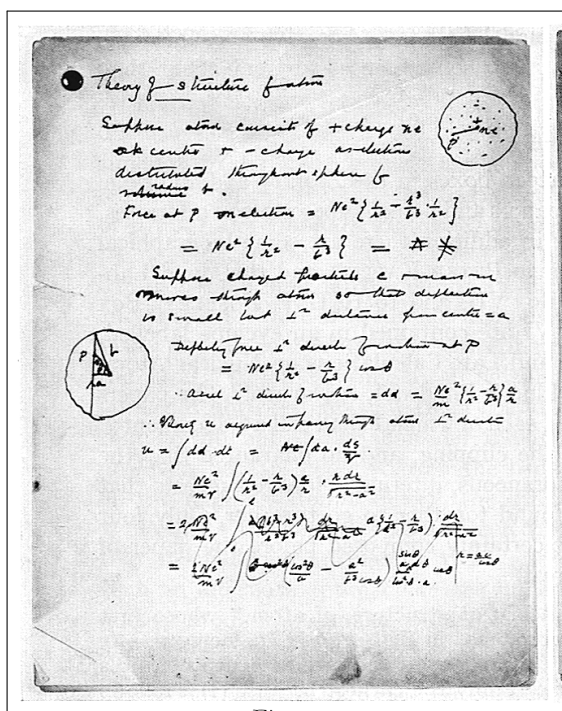 Theory of structure of atoms
Suppose atom consist of + charge ne
at centre + - charge as electron
distributed throughout sphere of
radius b.
Force at P on electron = Ne² {1/r² - r³/b³ · 1/r²}
= Ne² {1/r² - r/b³} =
Suppose charged particle e mass m
moves through atom so that deflection
is small and ⊥ʳ distance from centre = a
Deflecting force ⊥ʳ direction of motion at P
= Ne² {1/r² - r/b³} cos θ
∴ accel ⊥ʳ direction of motion = dd = Ne²/m {1/r² - r/b³} a/r
∴ Velocity u acquired in passing through atom ⊥ʳ direction
u = ∫ dd · dt = ∫ da · ds/V
= Ne²/mV ∫ (1/r² - r/b³) a/r · r dr/√r² - a²
= 2 Ne²/mV ∫ a {1/r² - r/b³} · dr/√r² - a²
= 2Ne²/mV ∫
P + ne
P b a